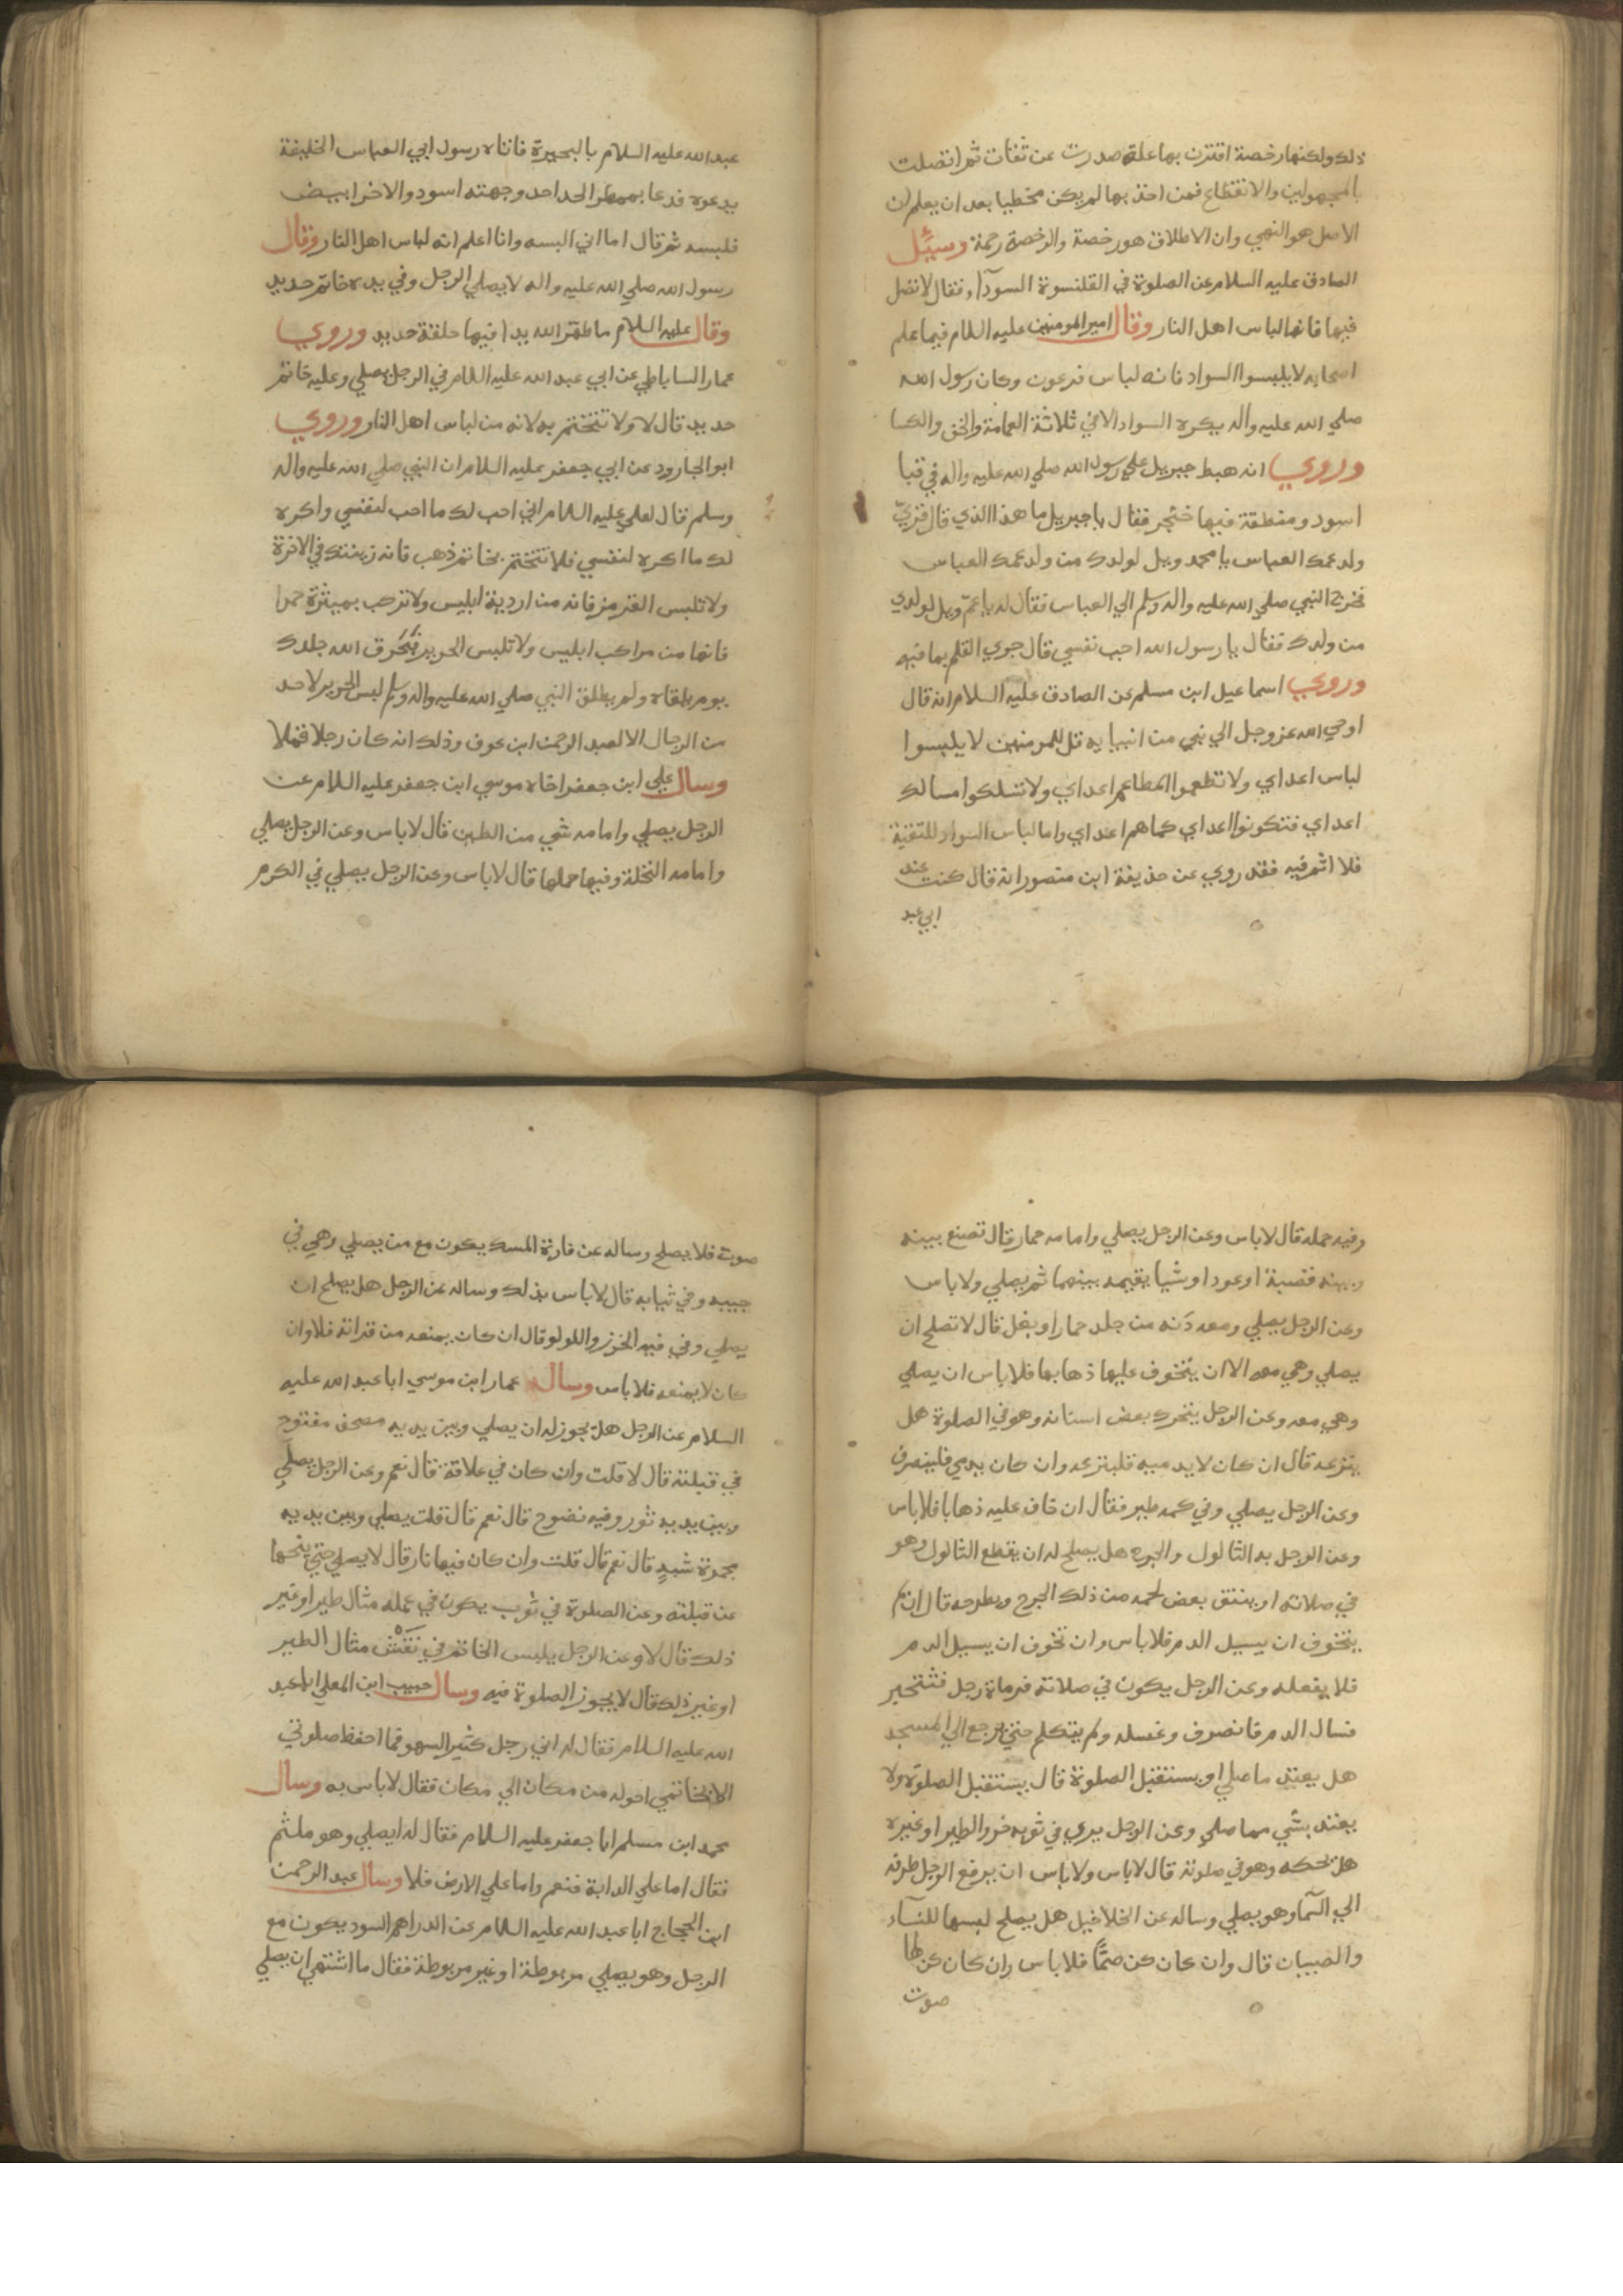 ذلك ولكنها رخصة اقترنت بها علة صدرت عن ثقات ثم اتصلت
بالمجهولين والانقطاع فمن اخذ بها لم يكن مخطيا بعد ان يعلم ان
الاصل هو النهي وان الاطلاق هو رخصة والرخصة رحمة وسيئل
الصادق عليه السلام عن الصلوة في القلنسوة السودآء فقال لا تصل
فيها فانها لباس اهل النار وقال امير المومنين عليه السلام فيما علم
اصحابه لا يلبسوا السواد فانه لباس فرعون وكان رسول الله
صلي الله عليه واله يكره السواد الا في ثلاثة العمامة والخف والكسا
وروي انه هبط جبريل علي رسول الله صلي الله عليه واله في قبا
اسود ومنطقة فيها خنجر فقال يا جبريل ما هذا الذي قال زيّ
ولد عمك العباس يا محمد ويل لولدك من ولد عمك العباس
فخرج النبي صلي الله عليه واله وسلم الي العباس فقال له يا عمّ ويل لولدي
من ولدك فقال يا رسول الله احب نفسي قال جري القلم بما فيه
وروي اسماعيل ابن مسلم عن الصادق عليه السلام انه قال
اوحي الله عز وجل الي نبي من انبيايه قل للمومنين لا يلبسوا
لباس اعداي ولا تطعموا المطاعم اعداي ولا تسلكوا مسالك
اعداي فتكونوا اعداي كما هم اعداي واما لباس السواد للتقية
فلا اثم فيه فقد روي عن حذيفة ابن منصور انه قال كنت عند
ابي عبد
عبد الله عليه السلام بالبحيرة فاتاه رسول ابي العباس الخليفة
يدعوه فدعا بممطر الحد احد وجهته اسود والاخر ابيض
فلبسه ثم قال اما اني البسه وانا اعلم انه لباس اهل النار وقال
رسول الله صلي الله عليه واله لا يصلي الرجل وفي يده خاتم حديد
وقال عليه السلام ما طهر الله يدا فيها حلقة حديد وروي
عمار الساباطي عن ابي عبد الله عليه السلام في الرجل يصلي وعليه خاتم
حديد قال لا ولا تتختم به لانه من لباس اهل النار وروي
ابو الجارود عن ابي جعفر عليه السلام ان النبي صلي الله عليه واله
وسلم قال لعلي عليه السلام اني احب لك ما احب لنفسي واكره
لك ما اكره لنفسي فلا تتختم بخاتم ذهب فانه زينتك في الاخرة
ولا تلبس القرمز فانه من اردية ابليس ولا تركب بميثرة حمرا
فانها من مراكب ابليس ولا تلبس الحرير فَيَحْرق الله جلدك
يوم يلقاه ولم يطلق النبي صلي الله عليه واله وسلم لبس الحرير لاحد
من الرجال الا لعبد الرحمن ابن عوف وذلك انه كان رجلا قملا
وسال علي ابن جعفر اخاه موسي ابن جعفر عليه السلام عن
الرجل يصلي وامامه شي من الطين قال لا باس وعن الرجل يصلي
وامامه النخلة وفيها حملها قال لا باس وعن الرجل يصلي في الكرم
وفيه حمله قال لا باس وعن الرجل يصلي وامامه حمار قال تصنع بينه
وبينه قصبة او عودا او شيا يقيمه بينهما ثم يصلي ولا باس
وعن الرجل يصلي ومعه دَنه من جلد حمار او بغل قال لا تصلح ان
يصلي وهي معه الا ان يتخوف عليها ذهابها فلا باس ان يصلي
وهي معه وعن الرجل يتحرك بعض اسنانه وهو في الصلوة هل
ينزعه قال ان كان لا يدميه فلينزعه وان كان يدمي فلينصرف
وعن الرجل يصلي وفي كمه طير فقال ان خاف عليه ذهابا فلا باس
وعن الرجل به الثالول والجرح هل يصلح له ان يقطع الثالول وهو
في صلاته او ينتق بعض لحمه من ذلك الجرح ويطرحه قال ان لم
يتخوف ان يسيل الدم فلا باس وان تخوف ان يسيل الدم
فلا يفعله وعن الرجل يكون في صلاته فرماه رجل
فسال الدم فانصرف وغسله ولم يتكلم حتي رجع الي المسجد
هل يعتد ما صلي او يستقبل الصلوة قال يستقبل الصلوة ولا
يعتد بشي مما صلي وعن الرجل يري في ثوبه خرو الطير او غيره
هل يحكه وهو في صلوته قال لا باس ولا باس ان يرفع الرجل طرفه
الي السمآ وهو يصلي وساله عن الخلاخيل هل يصلح لبسها للنسآء
والصبيان قال وان كان كن صمًّا فلا باس وان كان كن لها
صوت
صوت فلا يصلح وساله عن فارة المسك يكون مع من يصلي وهي في
جيبه وفي ثيابه قال لا باس بذلك وساله عن الرجل هل يصلح ان
يصلي وفي فيه الخرز واللولو قال ان كان يمنعه من قراته فلا وان
كان لا يمنعه فلا باس وساله عمار ابن موسي ابا عبد الله عليه
السلام عن الرجل هل يجوز له ان يصلي وبين يديه مصحف مفتوح
في قبلته قال لا قلت وان كان في علاقة قال نعم وعن الرجل يصلي
وبين يديه ثور وفيه نضوح قال نعم قال قلت يصلي وبين يديه
مجمرة شبهٍ قال نعم قال قلت وان كان فيها نار قال لا يصلي حتي ينحها
عن قبلته وعن الصلوة في ثوب يكون في عمله مثال طير او غير
ذلك قال لا وعن الرجل يلبس الخاتم في نَقْش مثال الطير
او غير ذلك قال لا يجوز الصلوة فيه وسال حبيب ابن المعلي ابا عبد
الله عليه السلام فقال له اني رجل كثير السهو فما احفظ صلوتي
الا بخاتمي احوله من مكان الي مكان فقال لا باس به وسال
محمد ابن مسلم ابا جعفر عليه السلام فقال له ايصلي وهو ملثم
فقال اما علي الدابة فنعم واما علي الارض فلا وسال عبد الرحمن
ابن الحجاج ابا عبد الله عليه السلام عن الدراهم السود يكون مع
الرجل وهو يصلي مربوطة او غير مربوطة فقال ما اشتهي ان يصلي